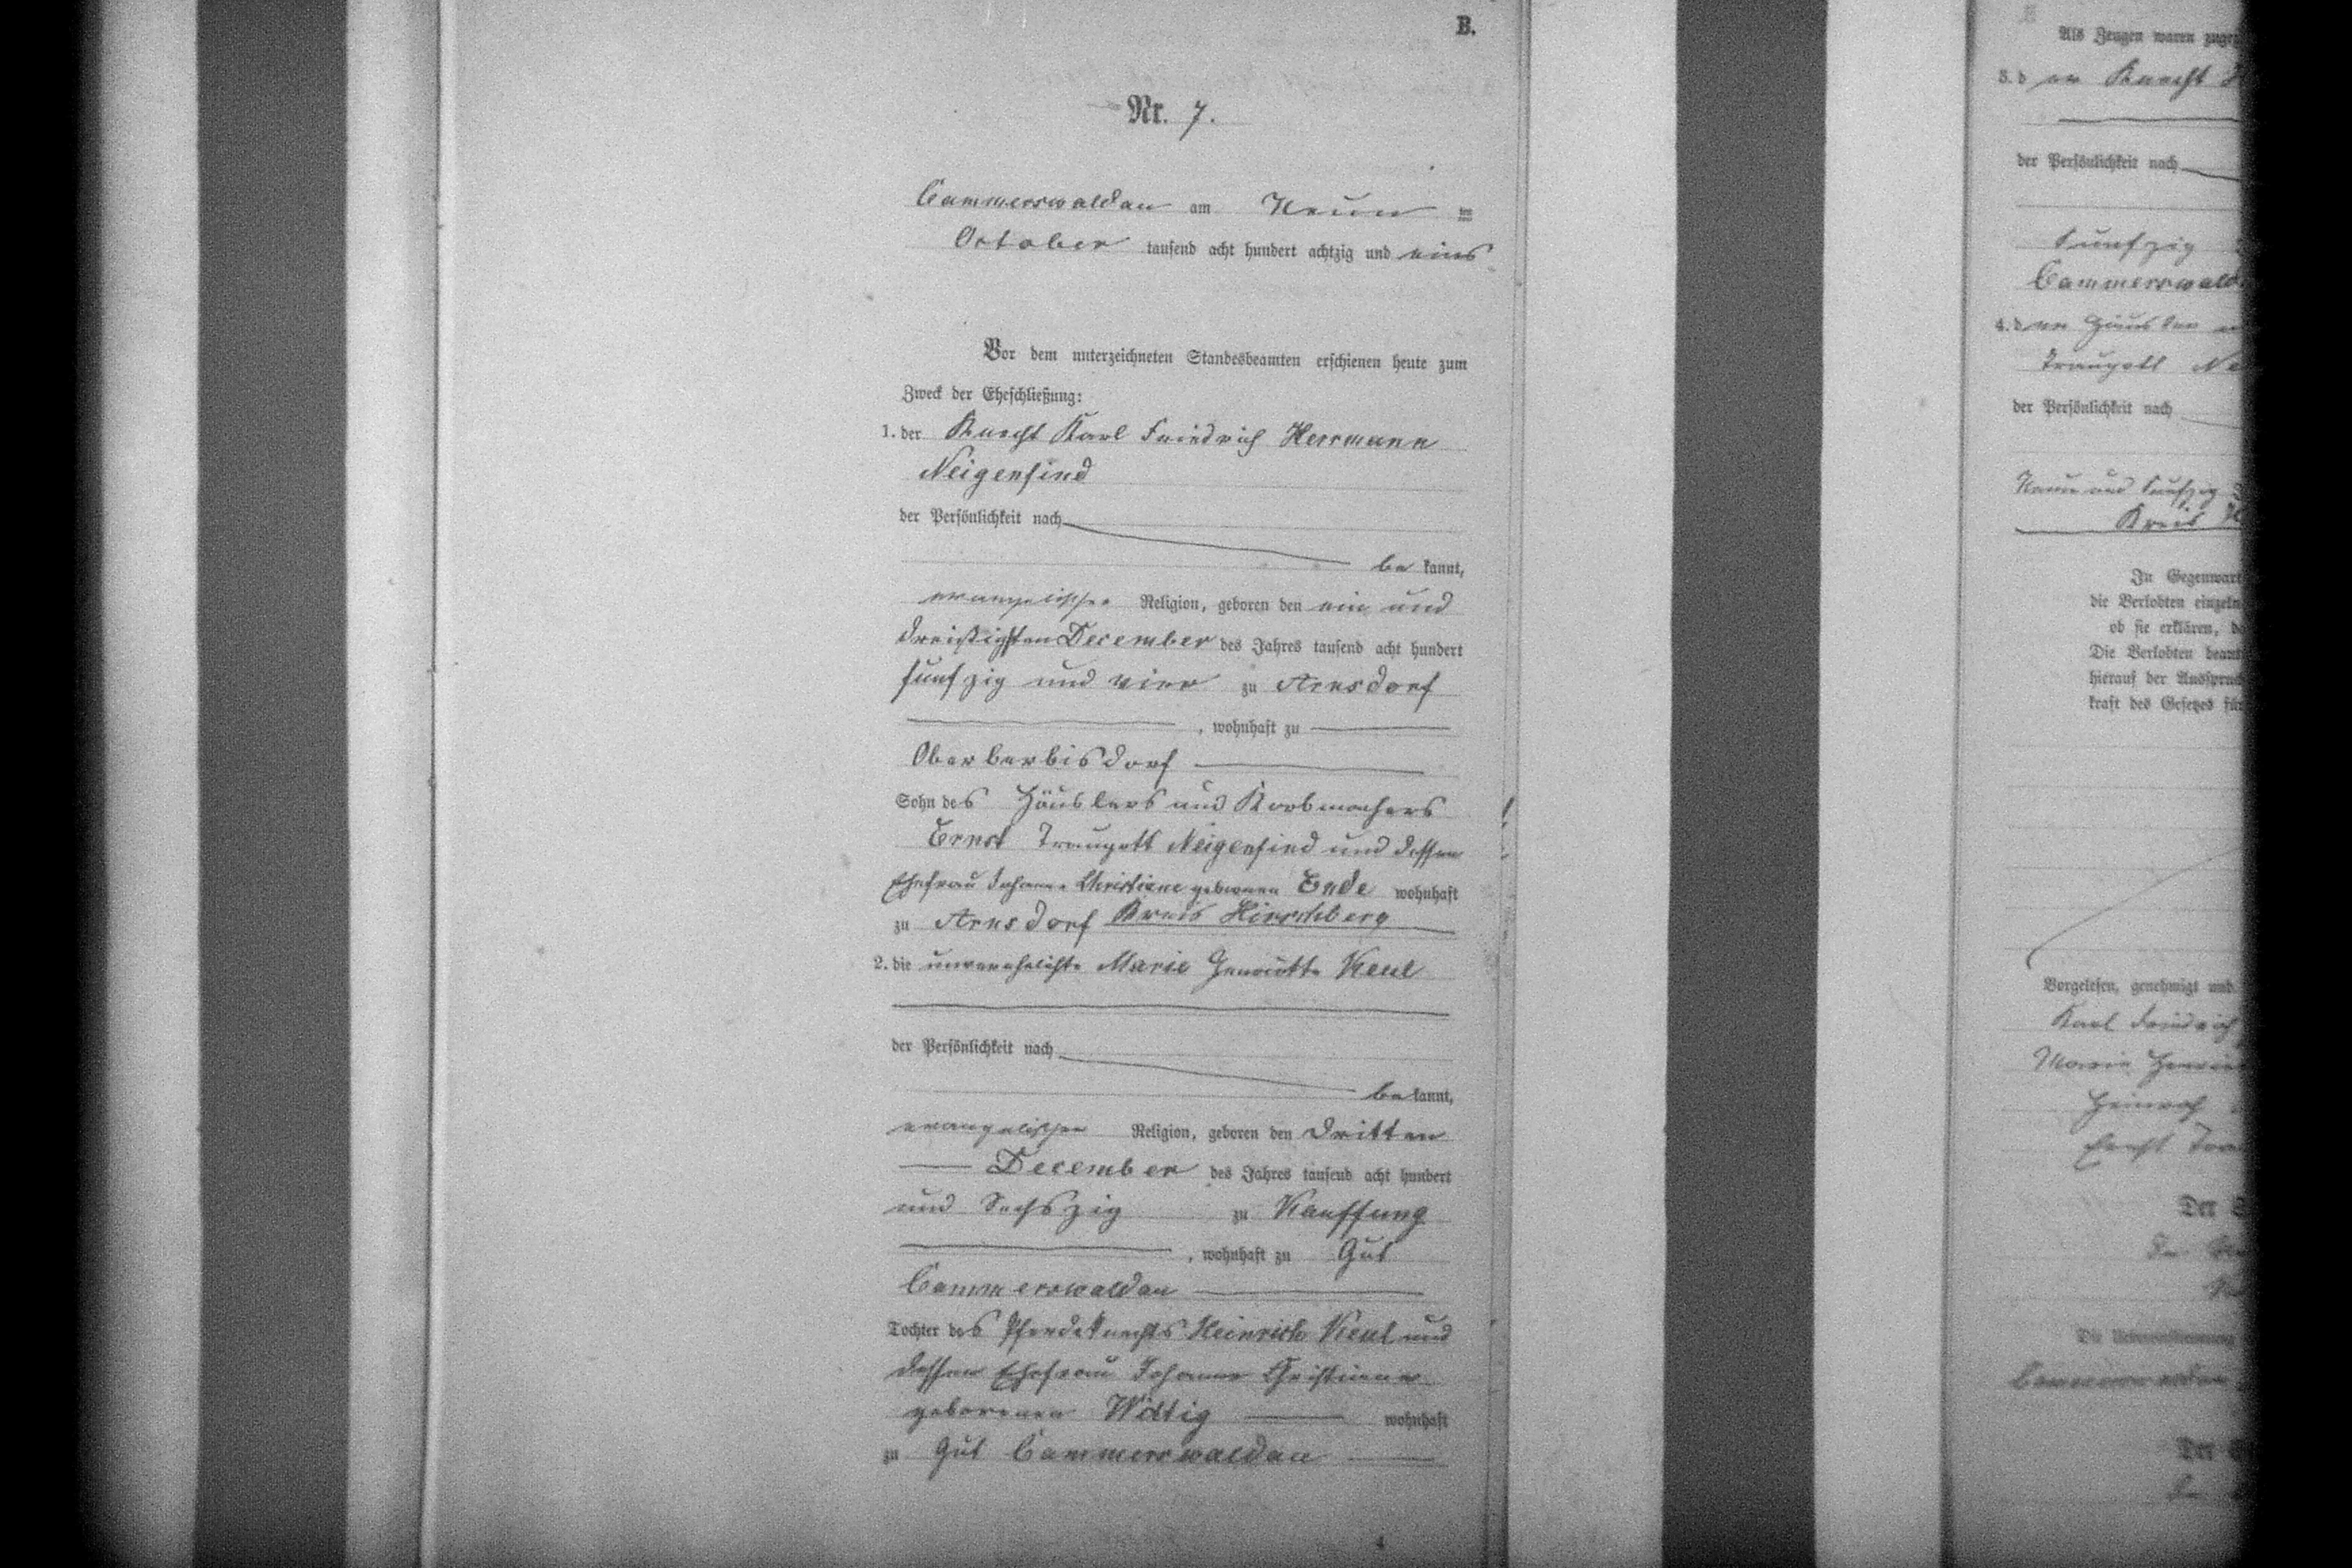 B.
Nr. 7.
Cammerswaldau am Neun ten
October tausend acht hundert achtzig und eins
Vor dem unterzeichneten Standesbeamten erschienen heute zum
Zweck der Eheschließung:
1. der Knecht Karl Friedrich Herrmann
Neigenfind
der Persönlichkeit nach
be kannt,
evangelischer Religion, geboren den ein und
dreißigsten December des Jahres tausend acht hundert
fünfzig und vier zu Arnsdorf
, wohnhaft zu
Oberberbisdorf
Sohn des Häuslers und Korbmachers
Ernst Traugott Neigenfind und dessen
Ehefrau Johanne Christiane geborenen Ende wohnhaft
zu Arnsdorf Kreis Hirschberg
2. die unverehelichte Marie Henriette Keul
der Persönlichkeit nach
be kannt,
evangelischer Religion, geboren den dritten
December des Jahres tausend acht hundert
und Sechszig zu Kauffung
, wohnhaft zu Gut
Cammerswaldau
Tochter des Pferdeknechts Heinrich Keul und
dessen Ehefrau Johanne Christiane
geborenen Wittig wohnhaft
zu Gut Cammerswaldau
4
Als Zeugen waren
3. d er Knecht
der Persönlichkeit nach
fünfzig
Cammerswald
4. d er Häusler
Traugott Ne
der Persönlichkeit nach
Neun und fünfzig
Kreis
In Gegenwart
die Verlobten einzeln
ob sie erklären,
Die Verlobten
hierauf der
kraft des Gesetzes für
Vorgelesen, genehmigt und
Karl Friedrich
Marie
Heinrich
Ernst
Der
Die
Cammerswaldau
Der